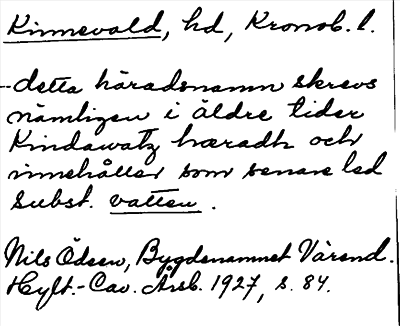 Kinnevald, hd, Kronob. l.
--detta häradsnamn skrevs
nämligen i äldre tider
Kindawatz hæradh och
innehåller som senare led
subst. vatten.
Nils Ödeen, Bygdenamnet Värend.
Hylt.-Cav. Årsb. 1927, s. 84.